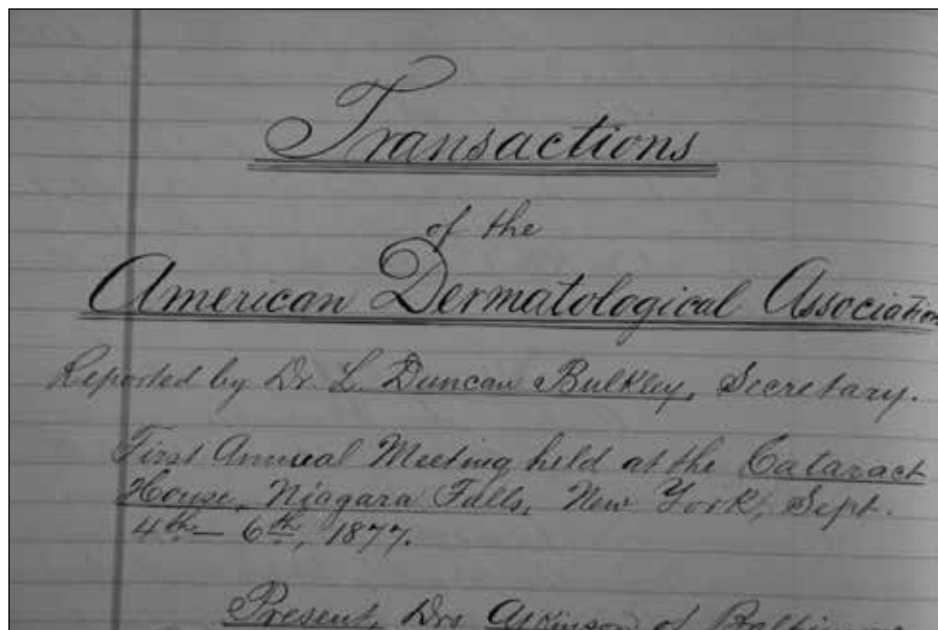 Transactions
of the
American Dermatological Association
Reported by Dr. L. Duncan Bulkley, Secretary.
First Annual Meeting held at the Cataract
House, Niagara Falls, New York, Sept.
4th – 6th, 1877.
Present, Drs Atkinson of Baltimore